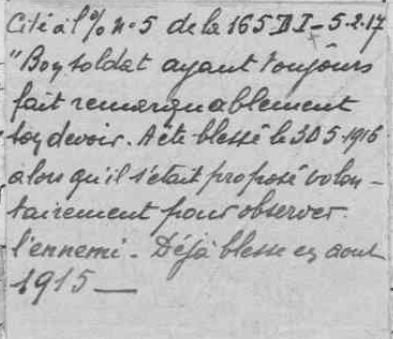 Cité à l'%o n°5 de la 165 D I - 5-2-17
"Bon soldat ayant toujours
fait remarquablement
son devoir. A été blessé le 30 5-1916
alors qu'il s'était proposé volon-
tairement pour observer
l'ennemi - Déjà blesse en aout
1915 —